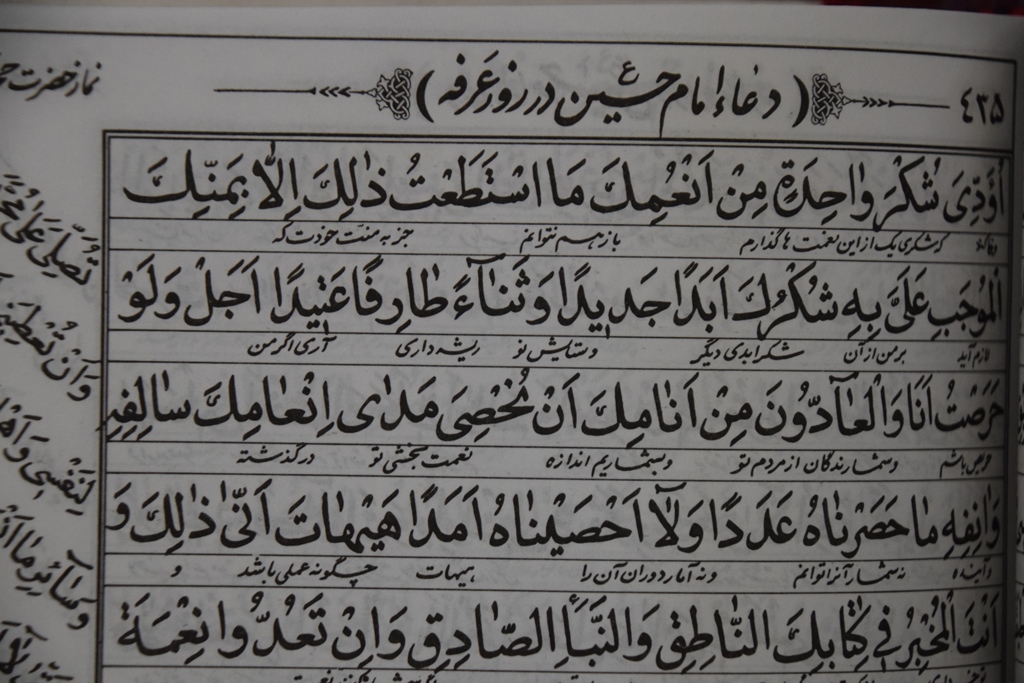 ۴۳۵
(دعاء امام حسین ع در روز عرفه)
نماز حضرت
اُؤَدِّىَ شُكْرَ وٰاحِدَةٍ مِنْ اَنْعُمِكَ مَا اسْتَطَعْتُ ذٰلِكَ اِلّٰا بِمَنِّكَ
که شکر یک از این نعمت ها گذارم باز هم نتوانم جز به منت خودت که
الْمُوجَبِ عَلَىَّ بِهِ شُكْرُكَ اَبَدًا جَدِيدًا وَثَنٰاۤءً طٰارِفًا عَتِيدًا اَجَلْ وَلَوْ
لازم آید بر من از آن شکر ابدی دیگر و ستایش نو ریشه داری آری اگر من
حَرَصْتُ اَنَا وَالْعٰاۤدُّونَ مِنْ اَنٰامِكَ اَنْ نُحْصِىَ مَدٰى اِنْعٰامِكَ سٰالِفِهِ
حریص باشم و شمارندگان از مردم تو و بشماریم اندازه نعمت بخشی تو در گذشته
وَاٰنِفِهِ مٰا حَصَرْنٰاهُ عَدَدًا وَلٰاۤ اَحْصَيْنٰاهُ اَمَدًا هَيْهٰاتَ اَنّٰى ذٰلِكَ وَ
و آینده نه شمار آنرا توانم و نه آمار دوران آن را هیهات چگونه عملی باشد و
اَنْتَ الْمُخْبِرُ فِى كِتٰابِكَ النّٰاطِقِ وَالنَّبَأِ الصّٰادِقِ وَاِنْ تَعُدُّوا نِعْمَةَ
تُصَلِّىَ عَلىٰ
وَاَنْ
لِنَفْسِى
وَسٰاۤئِرِ